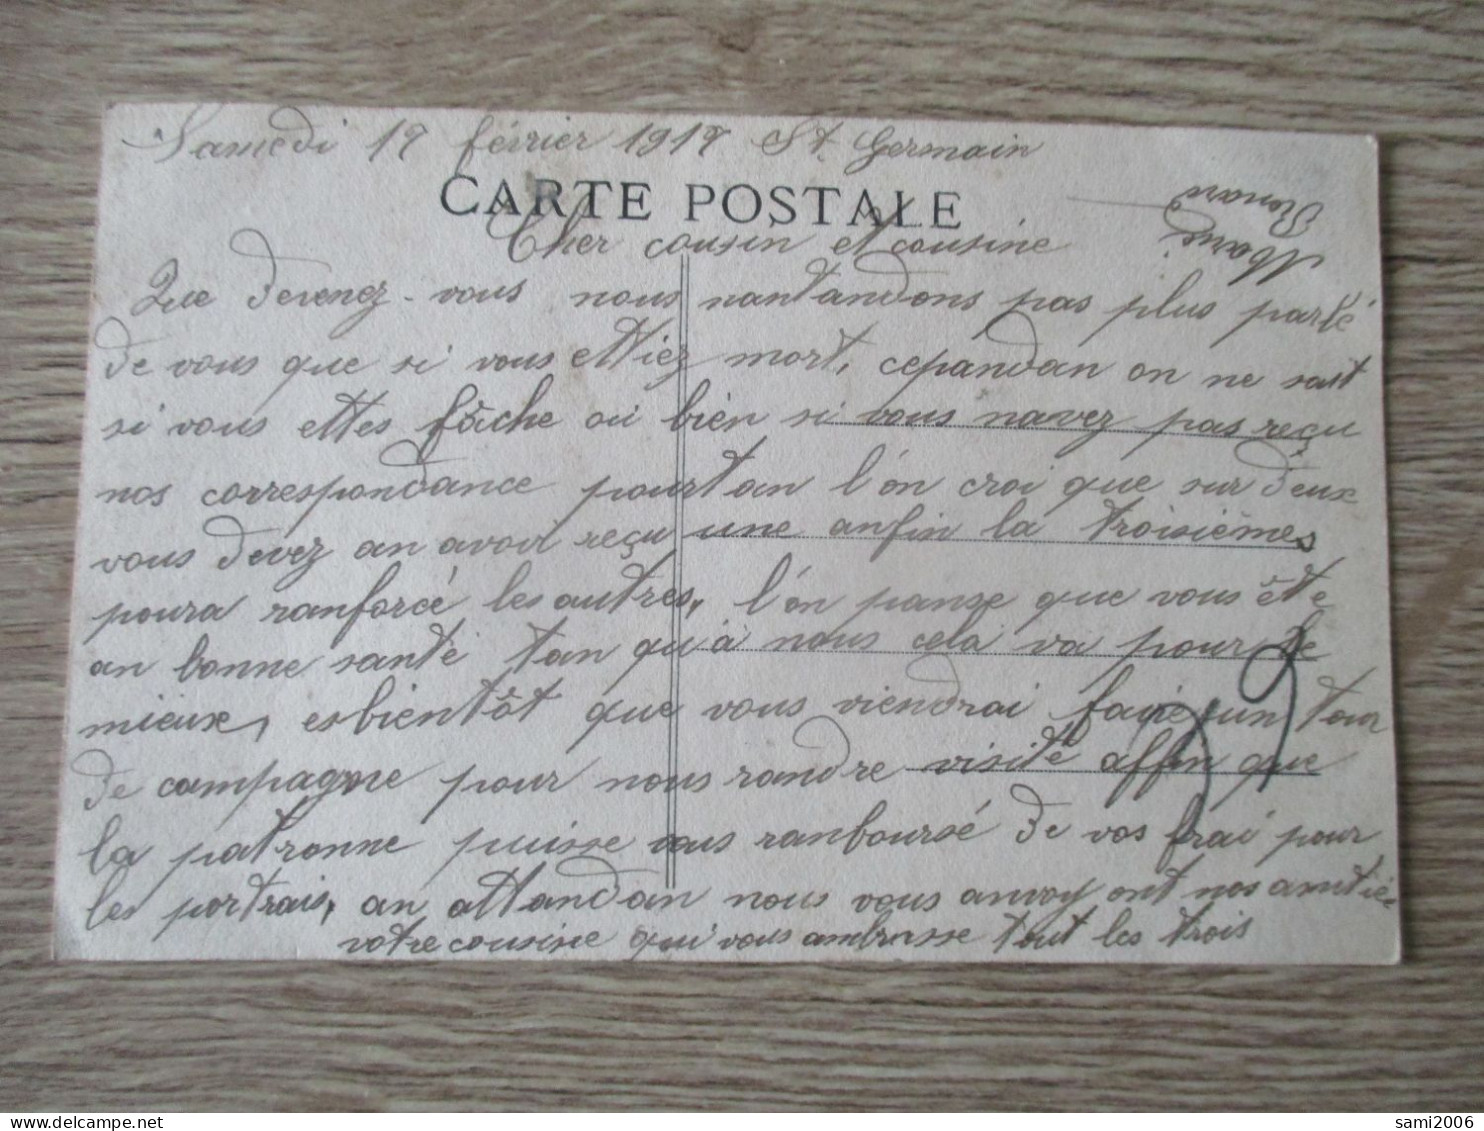 Samedi 17 février 1917 St Germain
CARTE POSTALE
Marie
Renard
Cher cousin et cousine
Que devenez-vous nous nantandons pas plus parlé
de vous que si vous ettiez mort, cepandan on ne sait
si vous ettes fâche ou bien si vous navez pas reçu
nos correspondance pourtan l'on croi que sur deux
vous devez an avoir reçu une anfin la troisièmes
poura ranforcé les autres, l'on panse que vous ête
an bonne santé tan qu'à nous cela va pour le
mieux, esbientôt que vous viendrai faire un tour
de campagne pour nous randre visite affin que
la patronne puisse vous ranboursé de vos frai pour
les portrais, an attandan nous vous anvoyont nos amitiée
votre cousine qui vous ambrasse tout les trois
sami2006